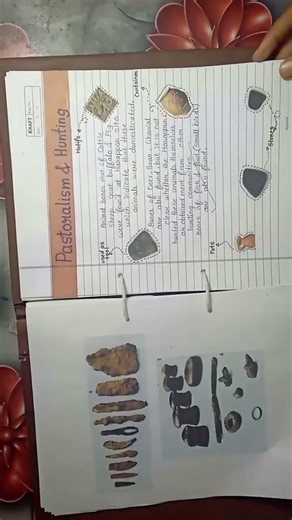 KRAFT
Pastoralism & Hunting
Motifs
Animal bones that of Cattle,
Sheep, Goat, buffalo & Pig
were found at Harappan site
which indicate that these
animals were domesticated.
Container
used as
Bones of Deer, Boar, Gharial
are also found but it is not
clear whether the Harappans
hunted these animals themselves
or obtained meat from other
hunting communities.
Bones of fish & fowl (small birds)
are also found.
Pots
Stones